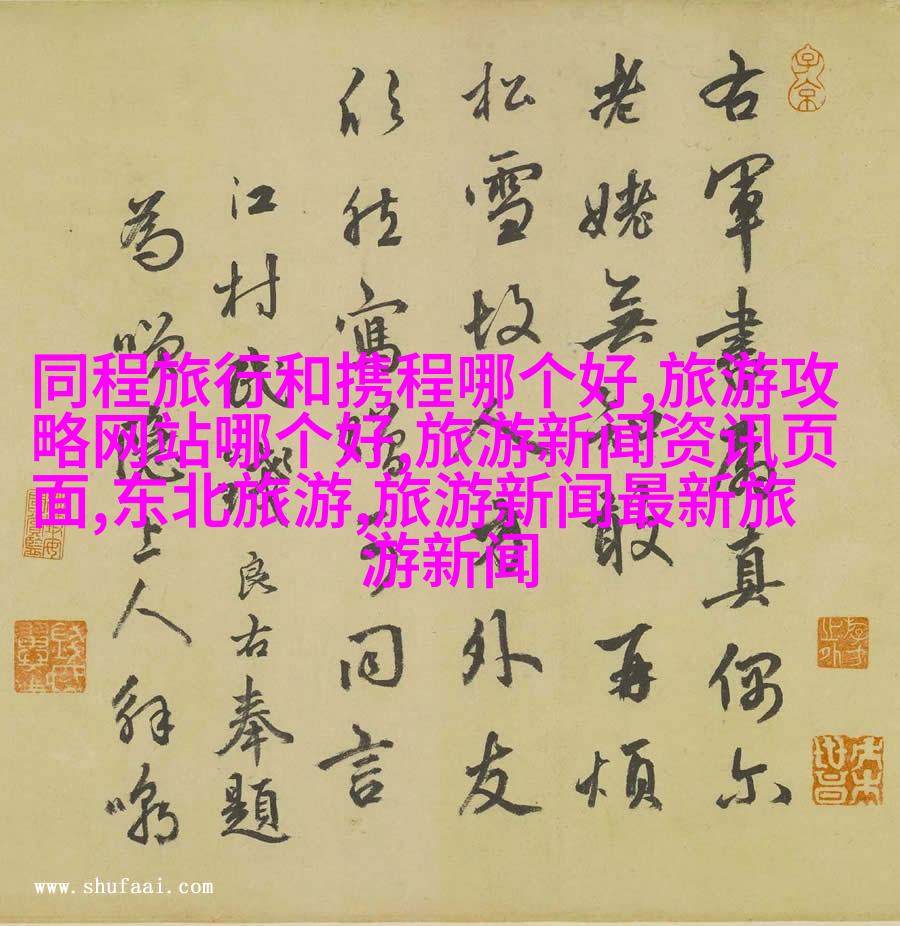 同程旅行和携程哪个好,旅游攻
略网站哪个好,旅游新闻资讯页
面,东北旅游,旅游新闻最新旅
游新闻
右軍書扇真偶尔
老姥無知敢再煩
松雪故人外友
欣然寫贈同言
江村民良右奉題
為隱上人解嘲
www.shufaai.com